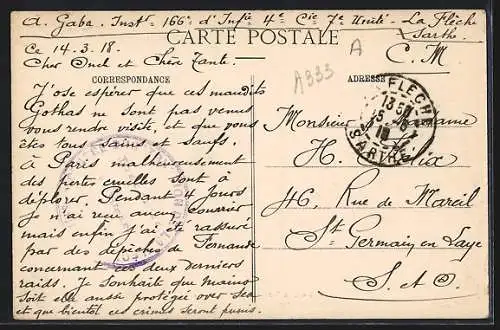 A. Gaba. Instr 166e d'Infie 4e Cie 7e Unité - La Flèche
Sarthe.
Ce 14.3.18.
CARTE POSTALE
C. M
A
A333
Cher Oncl et Chère Tante.
CORRESPONDANCE
ADRESSE
J'ose espérer que ces maudits
Gothas ne sont pas venus
vous rendre visite, et que vous
êtes tous sains et saufs.
À Paris malheureusement
des pertes cruelles sont à
déplorer. Pendant 4 jours
je n'ai reçu aucun courrier
mais enfin j'ai été rassuré
par des dépêches de Fernande
concernant ces deux derniers
raids. Je souhaite que Maino
soit elle aussi protégée
et que bientôt ces crimes seront punis.
LA FLECHE
SARTHE
Monsieur Madame
H.
46, Rue de Mareil
St Germain en Laye
S. et O.